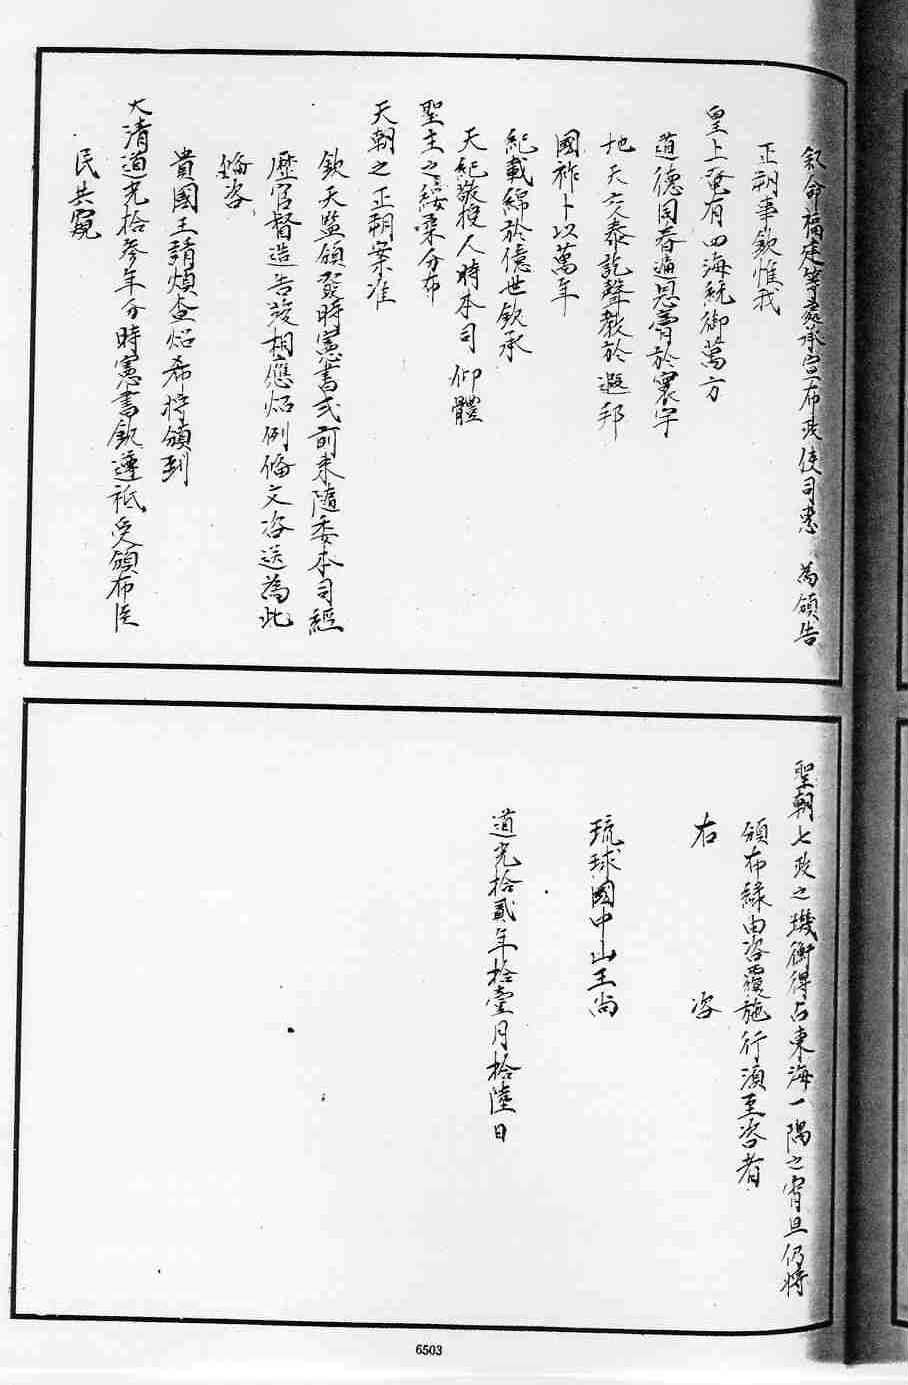 欽命福建等處承宣布政使司惠　為頒告
正朔事欽惟我
皇上奄有四海統御萬方
道德同春遍恩膏於寰宇
地天交泰訖聲教於遐邦
國祚卜以萬年
紀載綿於億世欽承
天紀敬授人時本司仰體
聖主之綏柔分布
天朝之正朔案准
欽天監頒發時憲書式前來隨委本司經
歷官督造告竣相應炤例俻文咨送為此
俻咨
貴國王請煩查炤希將頒到
大清道光拾參年分時憲書欽遵祇受頒布臣
民共窺
聖朝七政之璣衡得占東海一隅之宵旦仍將
頒布緣由咨覆施行須至咨者
右　　咨
琉球國中山王尚
道光拾貳年拾壹月拾陸日
6503